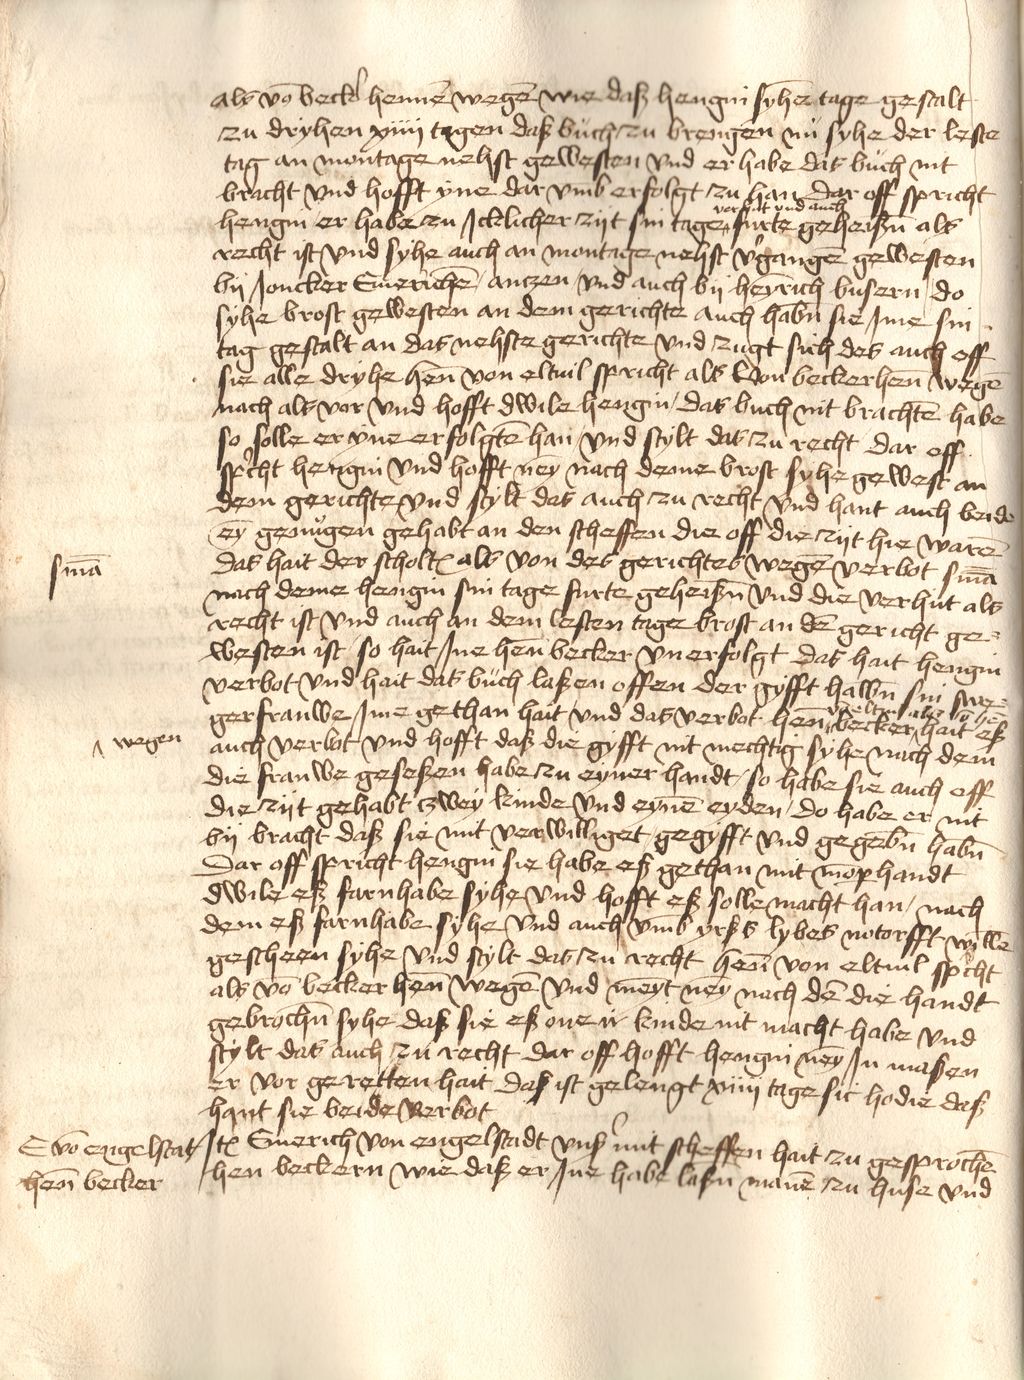 als vō beckers hennē wegē wie daß hengin syhe tage gestalt
zu dryhen xiiii tagen daß buch zu brengen nū syhe der leste
tag an montage nehst gewesten vnd er habe das buch nit
bracht vnd hofft yne dar vmb erfolgt zu han Dar off spricht
verhut vnd auch
hengin er habe zu Jcklicher zijt sin tage furte geheißn als
recht ist vnd syhe auch an montage nehst v'gangē gewesten
bij Joncker Emerichē / antzen vnd auch bij heyrich busern / do
syhe brost gewesten an dem gerichte auch habn sie Jme sin
tag gestalt an das nehste gerichte vnd zugt sich des auch off
sie alle dryhe Hen̄ von eltuil spricht als von beckerhen̄ wegē
nach als vor vnd hofft dwile hengin / das buch nit brachtē habe
so solle er yne erfolgtē han / vnd stylt das zu recht Dar off
sp'cht hengin vnd hofft ney nach deme brost syhe gewest an
dem gerichte vnd stylt das auch zu recht vnd hant auch beide
ey genūgen gehabt an den scheffen die off die zijt hie warē
sm̄a
Das hait der scholt als von des gerichtes wegē verbot sm̄a
nach deme hengin sin tage furte geheißn vnd die verhut als
recht ist vnd auch an dem lesten tage brost an dē gericht ge-
westen ist / so hait Jne hen̄ becker vnerfolgt das hait hengin
verbot vnd hait das buch laßen offen der gyfft halbn sin swe-
gerfrauwe Jme gethan hait vnd das verbot hen̄ becker / hait eß
wegen
auch verbot vnd hofft daß die gyfft nit mechtig syhe nach dem
die frauwe geseßen habe zu eyner handt / so habe sie auch off
die zijt gehabt zwey kinde vnd eynē eyden / do habe er nit
bij bracht daß sie mit verwilliget gegyfft vnd gegebn habn
Dar off spricht hengin sie habe eß gethan mit handt
dwile eß farnhabe syhe vnd hofft eß solle macht han / nach
dem eß farnhabe syhe vnd auch vmb yrßs lybes notorfft willē
gescheen syhe vnd stylt das zu recht Hen̄ von eltuil sp'cht
als vō beckerhen̄ wegē vnd meyt ney nach dē die handt
gebrochn syhe daß sie eß one ir kinde nit macht habe vnd
stylt das auch zu recht dar off hofft hengin ney Jn maßen
er vor geretten hait Daß ist gelengt xiiii tage sic hodie daß
hant sie beide verbot
E vō engelstat
hen̄ becker
Jt Emerich von engelstadt vnß' mit scheffen hait zu gesprochē
hen beckern wie daß er Jne habe laßn manē zu huse vnd